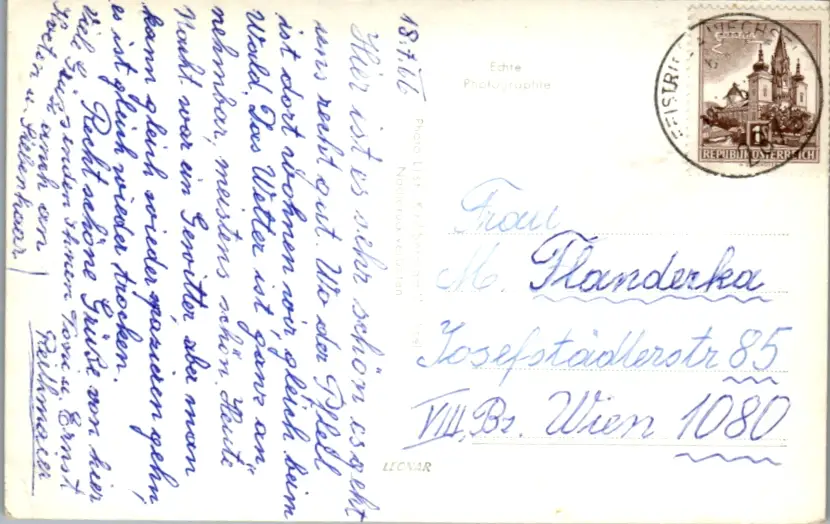 18.7.66
Hier ist es sehr schön es geht
uns recht gut. Wo der Pfeil
ist dort wohnen wir gleich beim
Wald. Das Wetter ist ganz an
nehmbar, meistens schön. Heute
Nacht war ein Gewitter aber man
kann gleich wieder spazieren gehn,
es ist gleich wieder trocken.
Recht schöne Grüße von hier
viele Grüße senden Ihnen Toni u. Ernst
auch an
u. Siebenhaar
Reithmaier
Echte
Photographie
FEISTRITZ WECHSEL
1 S
REPUBLIK ÖSTERREICH
Frau
M. Flanderka
Josefstädlerstr 85
VIII. Bz. Wien 1080
LEGNAR